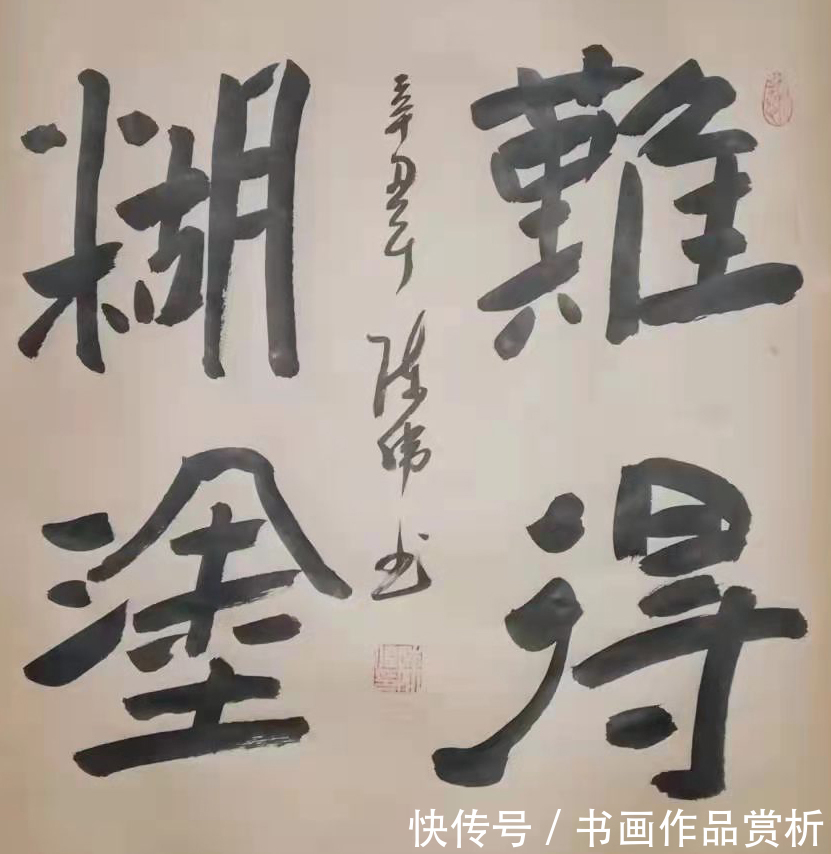 難得
糊塗
辛丑年 陈伟书
快传号 / 书画作品赏析